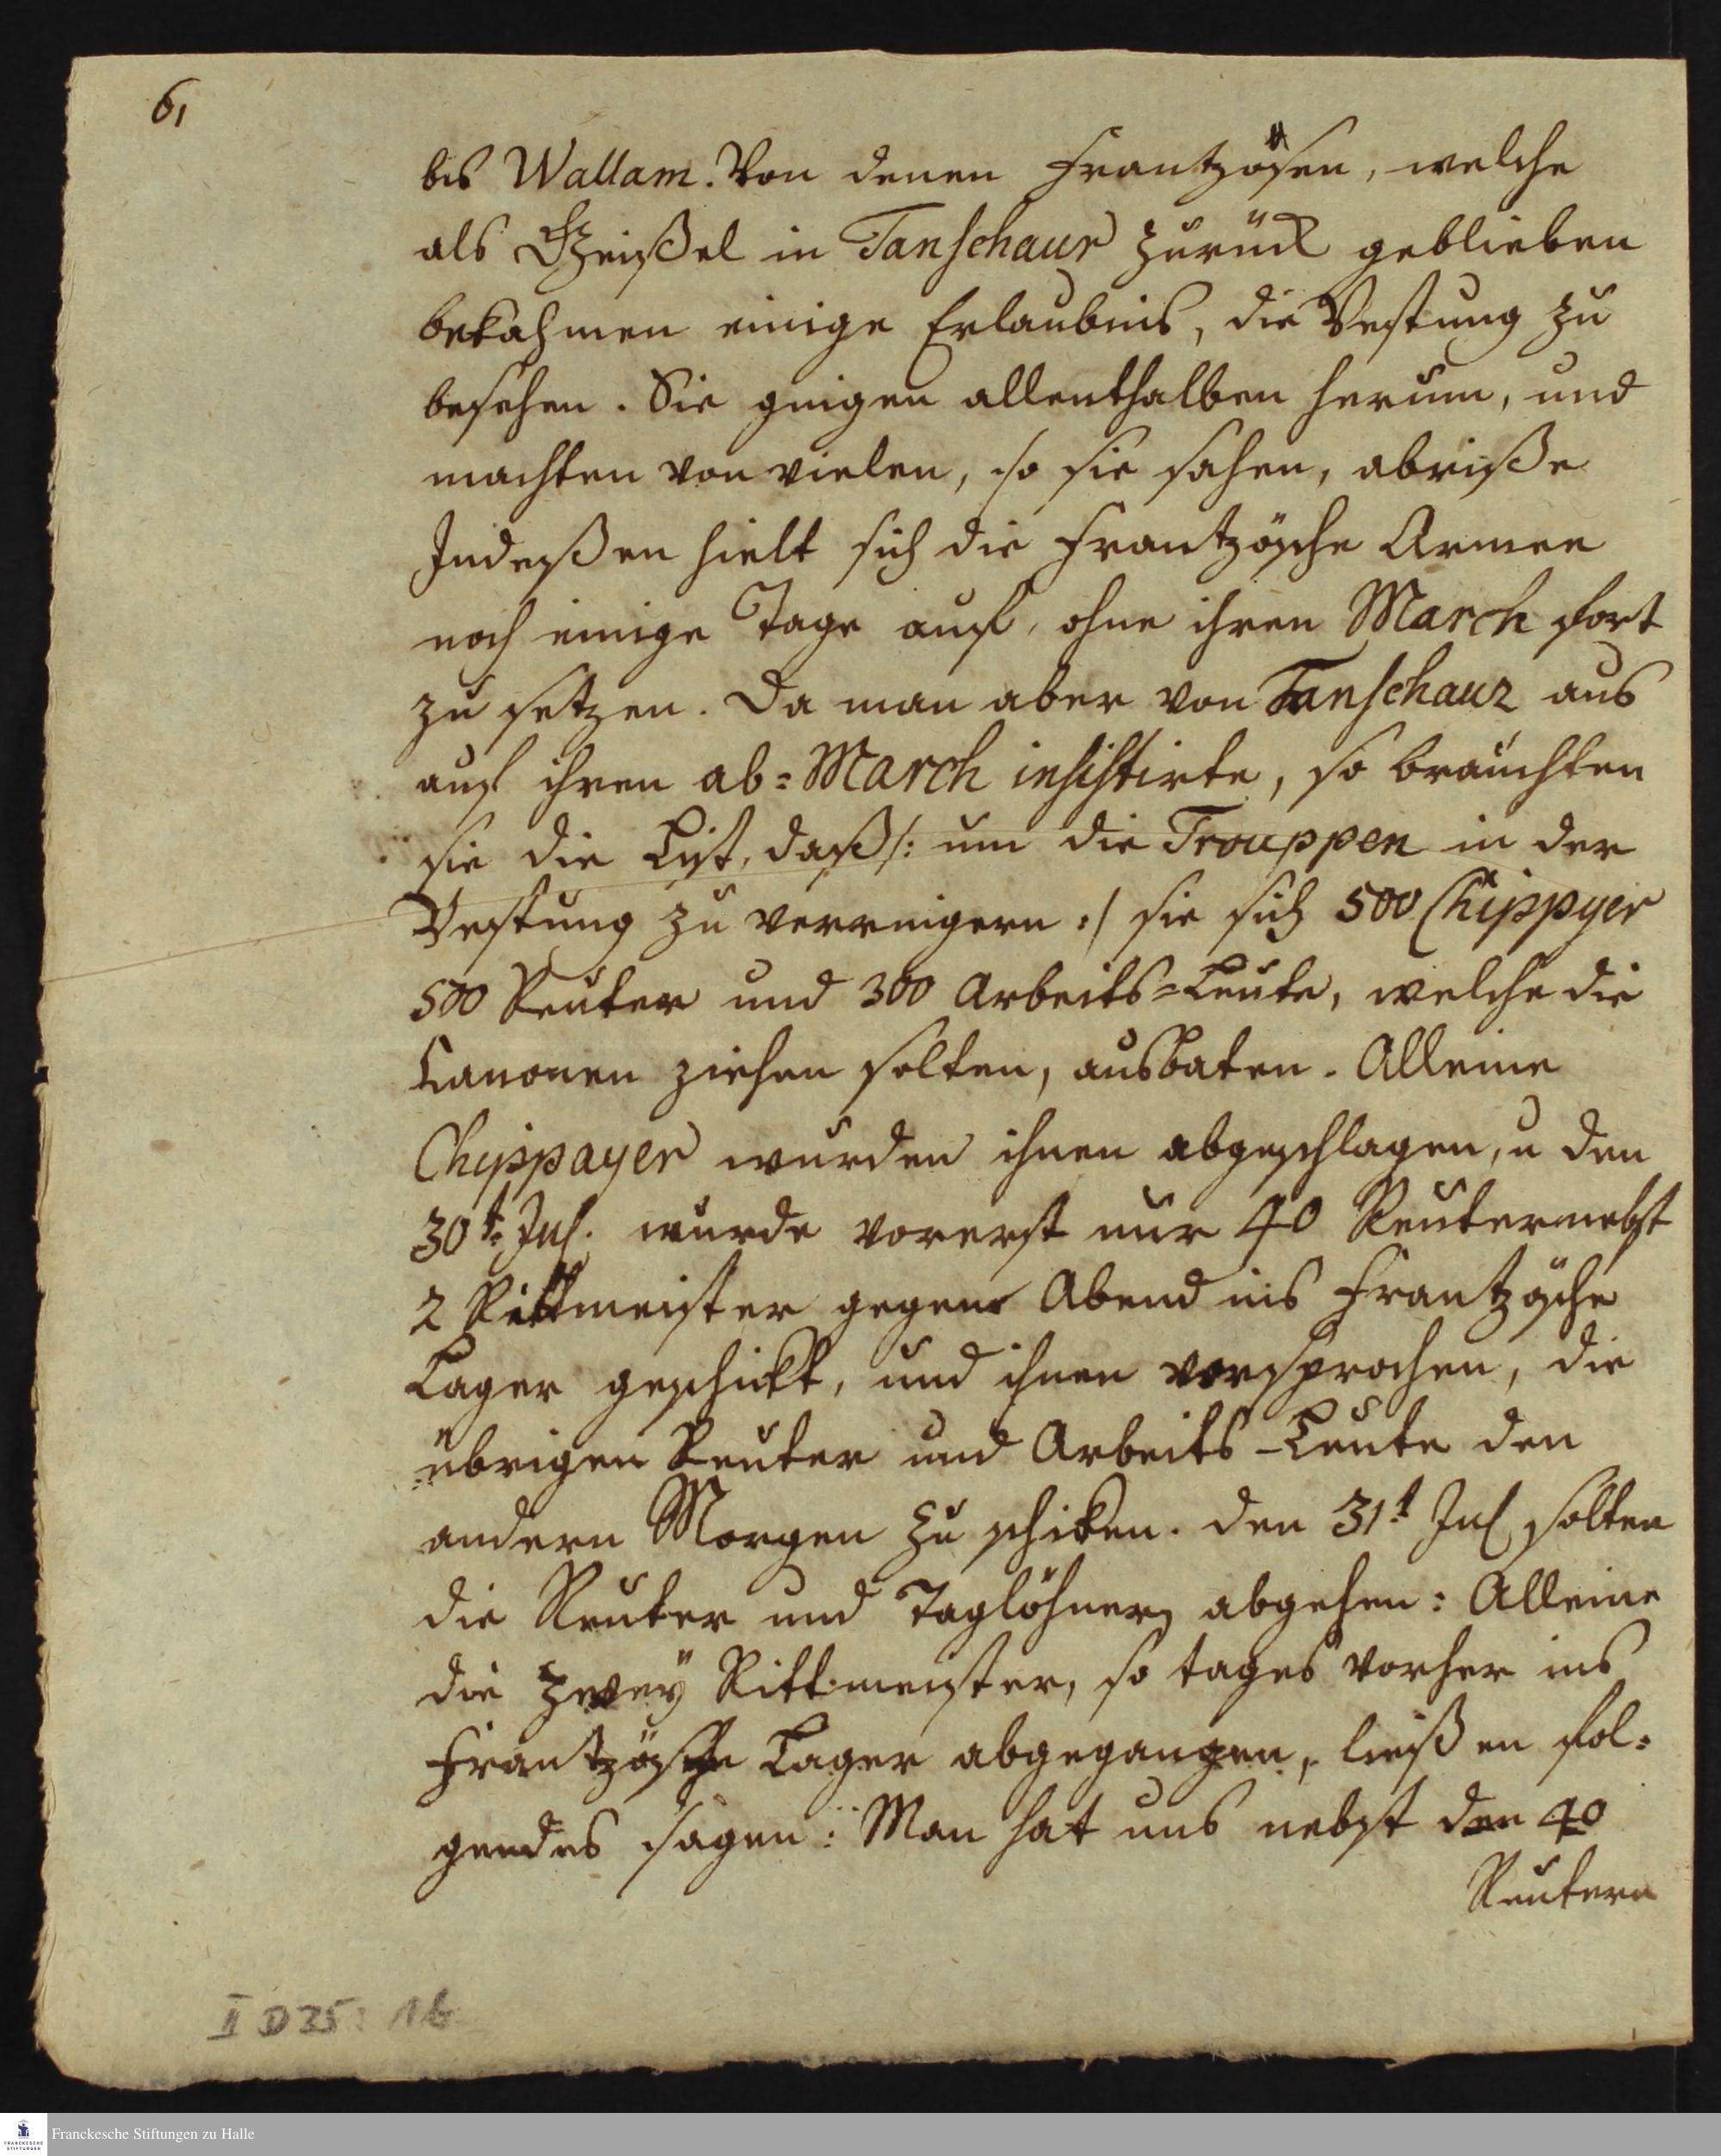 61
bis Wallam. Von denen Frantzösen, welche
als Gheißel in Tanschaur zurück geblieben
bekahmen einige Erlaubnis, die Vestung zu
besehen. Sie giengen allenthalben herum, und
machten von vielen, so sie sahen, abriße
Indeßen hielt sich die Frantzösche Armee
noch einige Tage auf, ohne ihren March fort
zu setzen. Da man aber von Tanschaur aus
auf ihren ab=March insistirte, so brauchten
sie die List, daß /: um die Trouppen in der
Vestung zu verringern :/ sie sich 500 Chippyer
500 Reuter und 300 Arbeits=Leute, welche die
Canonen ziehen solten, ausbaten. Alleine
Chippayer wurden ihnen abgeschlagen, u den
30t. Jul. wurde vorerst nur 40 Reuter nebst
2 Rittmeister gegen Abend ins Frantzösche
Lager geschikt, und ihnen versprochen, die
übrigen Reuter und Arbeits-Leute den
andern Morgen zu schiken. Den 31t Jul solten
die Reuter und Taglöhner abgehen: Alleine
die zwey Rittmeister, so tages vorher ins
Frantzösche Lager abgegangen, ließen fol=
gendes sagen: Man hat uns nebst den 40
Reutern
II D 35: 16
Franckesche Stiftungen zu Halle
FRANCKESCHE
STIFTUNGEN